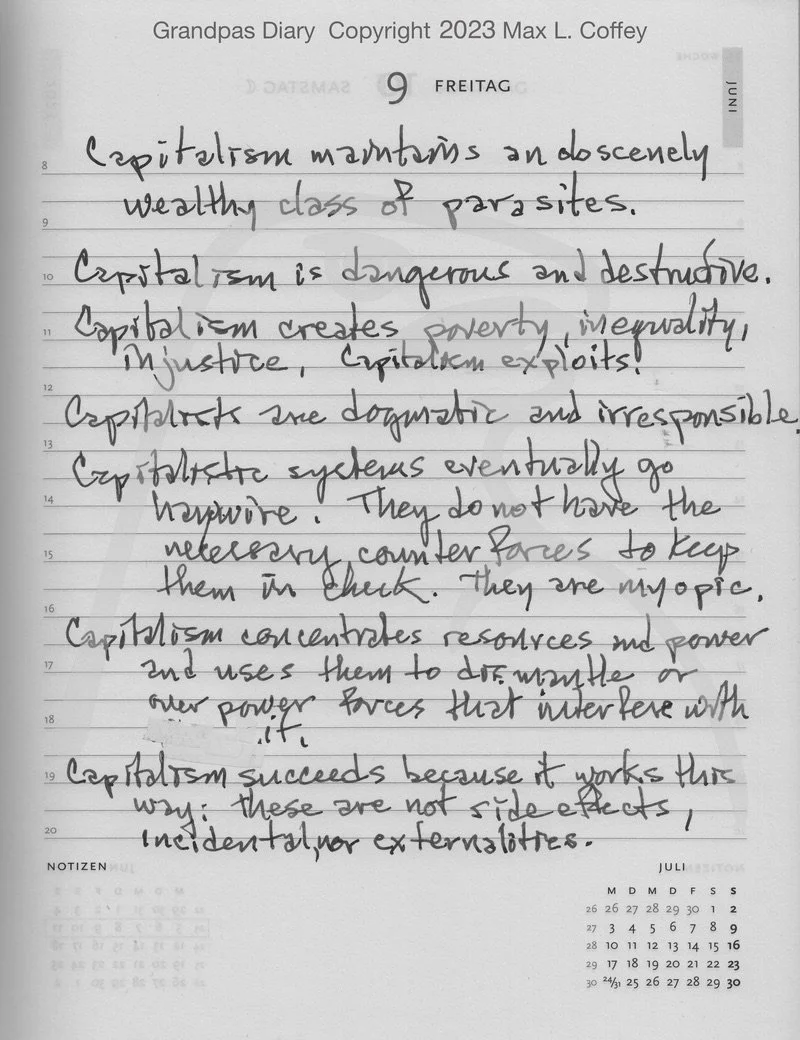 Grandpas Diary Copyright 2023 Max L. Coffey
9 FREITAG
JUNI
8 Capitalism maintains an obscenely
wealthy class of parasites.
9
10 Capitalism is dangerous and destructive.
11 Capitalism creates poverty, inequality,
injustice, Capitalism exploits!
12
Capitalists are dogmatic and irresponsible.
13
Capitalistic systems eventually go
14 haywire. They do not have the
15 necessary counter forces to keep
them in check. They are myopic.
16
Capitalism concentrates resources and power
17 and uses them to dismantle or
over power forces that interfere with
18 it.
19 Capitalism succeeds because it works this
way: these are not side effects,
20 incidental, nor externalities.
NOTIZEN
JULI
M D M D F S S
26 26 27 28 29 30 1 2
27 3 4 5 6 7 8 9
28 10 11 12 13 14 15 16
29 17 18 19 20 21 22 23
30 24/31 25 26 27 28 29 30